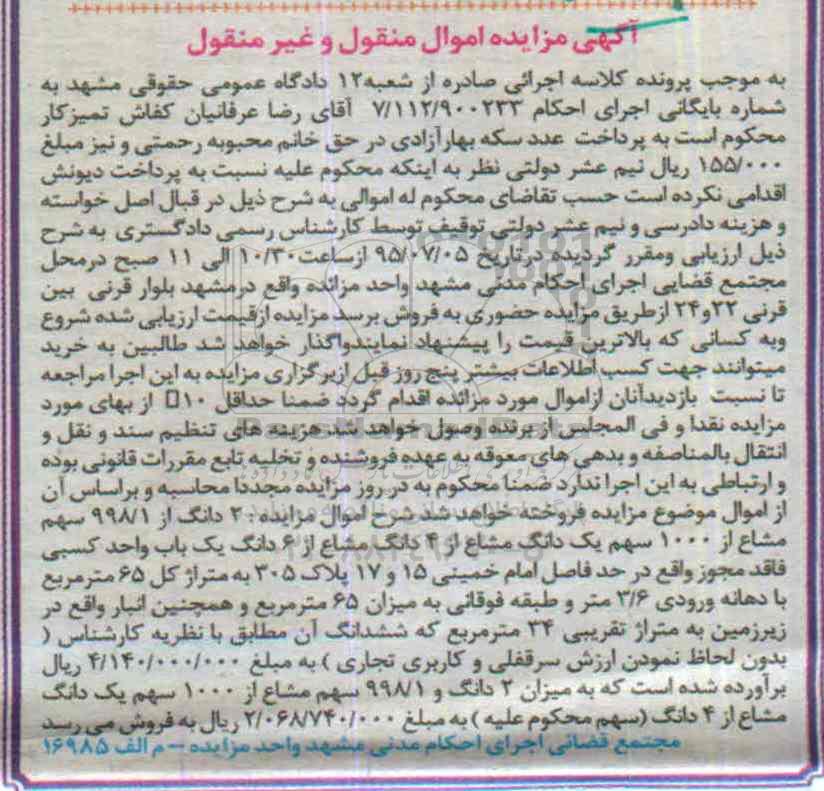 آگهی مزایده اموال منقول و غیر منقول
به موجب پرونده کلاسه اجرائی صادره از شعبه۱۲ دادگاه عمومی حقوقی مشهد به
شماره بایگانی اجرای احکام ۷/۱۱۲/۹۰۰۲۳۳ آقای رضا عرفانیان کفاش تمیزکار
محکوم است به پرداخت عدد سکه بهارآزادی در حق خانم محبوبه رحمتی و نیز مبلغ
۱۵۵/۰۰۰ ریال نیم عشر دولتی نظر به اینکه محکوم علیه نسبت به پرداخت دیونش
اقدامی نکرده است حسب تقاضای محکوم له اموالی به شرح ذیل در قبال اصل خواسته
و هزینه دادرسی و نیم عشر دولتی توقیف توسط کارشناس رسمی دادگستری به شرح
ذیل ارزیابی ومقرر گردیده درتاریخ ۹۵/۰۷/۰۵ ازساعت۱۰/۳۰ الی ۱۱ صبح درمحل
مجتمع قضایی اجرای احکام مدنی مشهد واحد مزائده واقع درمشهد بلوار قرنی بین
قرنی ۲۲و۲۴ ازطریق مزایده حضوری به فروش برسد مزایده ازقیمت ارزیابی شده شروع
وبه کسانی که بالاترین قیمت را پیشنهاد نمایندواگذار خواهد شد طالبین به خرید
میتوانند جهت کسب اطلاعات بیشتر پنج روز قبل ازبرگزاری مزایده به این اجرا مراجعه
تا نسبت بازدیدآنان ازاموال مورد مزائده اقدام گردد ضمنا حداقل ۱۰□ از بهای مورد
مزایده نقدا و فی المجلس از برنده وصول خواهد شد هزینه های تنظیم سند و نقل و
انتقال بالمناصفه و بدهی های معوقه به عهده فروشنده و تخلیه تابع مقررات قانونی بوده
و ارتباطی به این اجرا ندارد ضمنا محکوم به در روز مزایده مجددا محاسبه و براساس آن
از اموال موضوع مزایده فروخته خواهد شد شرح اموال مزایده : ۲ دانگ از ۹۹۸/۱ سهم
مشاع از ۱۰۰۰ سهم یک دانگ مشاع از ۴ دانگ مشاع از ۶ دانگ یک باب واحد کسبی
فاقد مجوز واقع در حد فاصل امام خمینی ۱۵ و ۱۷ پلاک ۳۰۵ به متراژ کل ۶۵ مترمربع
با دهانه ورودی ۳/۶ متر و طبقه فوقانی به میزان ۶۵ مترمربع و همچنین انبار واقع در
زیرزمین به متراژ تقریبی ۳۴ مترمربع که ششدانگ آن مطابق با نظریه کارشناس (
بدون لحاظ نمودن ارزش سرقفلی و کاربری تجاری ) به مبلغ ۴/۱۴۰/۰۰۰/۰۰۰ ریال
برآورده شده است که به میزان ۲ دانگ و ۹۹۸/۱ سهم مشاع از ۱۰۰۰ سهم یک دانگ
مشاع از ۴ دانگ (سهم محکوم علیه ) به مبلغ ۲/۰۶۸/۷۴۰/۰۰۰ ریال به فروش می رسد
مجتمع قضائی اجرای احکام مدنی مشهد واحد مزایده – م الف ۱۶۹۸۵